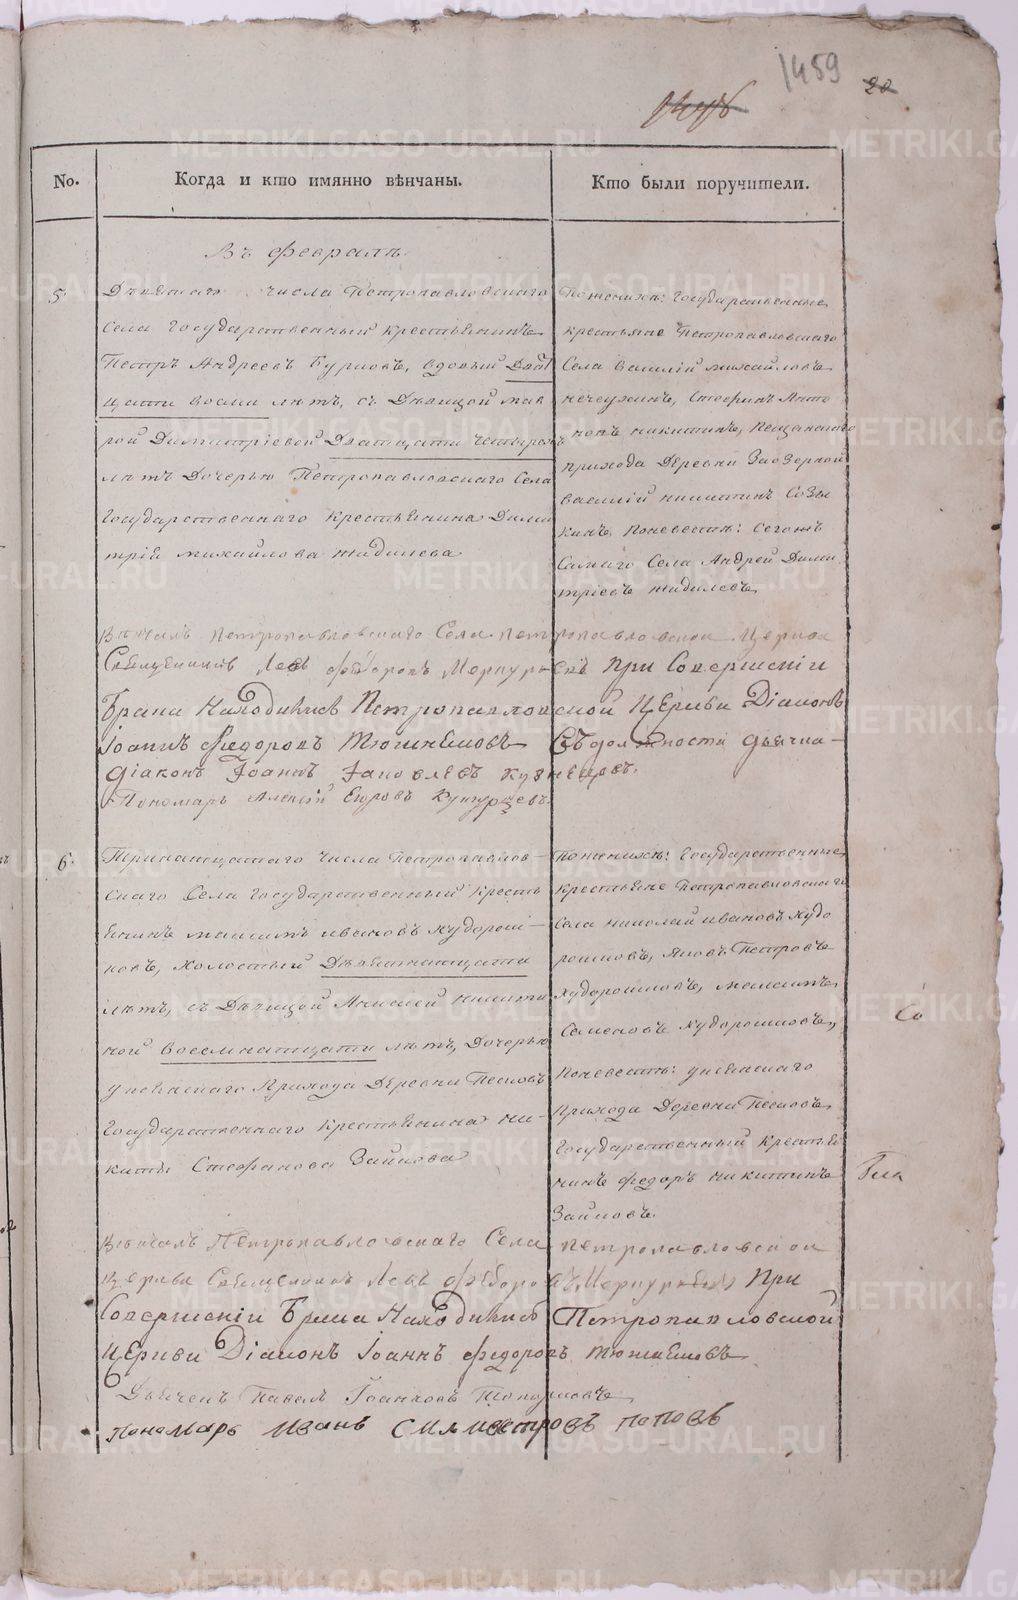 1459
20
No.
Когда и кто имянно вѣнчаны.
Кто были поручители.
Въ февралѣ
5.
числа Петропавловскаго
села государственный крестьянинъ
Петръ Андреевъ Бурковъ, вдовый Двад
цати восьми лѣтъ, съ Дѣвицой Мав
рой Димитріевой Дватцати четырехъ
лѣтъ Дочерью Петропавловскаго Села
Государственнаго крестьянина Дими
трія михайлова жидилева
По женихѣ: государственные
крестьяне Петропавловскаго
села василій михайловъ
Стефанъ Анто
новъ никитинъ,
прихода деревни Заозерной
василій никитинъ Созы
кинъ По невестѣ: сегожъ
Самаго Села Андрей Дими
тріевъ жидилевъ
Вѣнчалъ Петропавловскаго Села Петропавловской Церкви
Священникъ Левъ Федоровъ при Совершеніи
Брака Находились Петропавловской Церкви Діаконъ
Іоаннъ Федоровъ Въ должности дьячка
діаконъ Іоаннъ Іаковлевъ Кузнецовъ.
Пономарь Алексій Егоровъ
6.
Тринатцатаго числа Петропавлов-
скаго Села государственный кресть
янинъ максимъ ивановъ худорош-
ковъ, холостый Девятнатцати
лѣтъ, съ Дѣвицой Анисіей никити
ной восемнатцати лѣтъ, дочерью
прихода Деревни Песковъ
государственнаго крестьянина ни-
киты Стефанова Зайкова
По женихѣ: Государственные
крестьяне Петропавловскаго
Села николай ивановъ худо
рошковъ, яковъ Петровъ
худорошковъ, максимъ
Семеновъ худорошковъ,
По невестѣ:
Прихода Деревни Песковъ
государственный крестья
нинъ федоръ никитинъ
Зайковъ
Вѣнчалъ Петропавловскаго Села Петропавловской
церкви Священникъ Левъ Федоровъ При
Совершеніи Брака Находились Петропавловской
Церкви Діаконъ Іоаннъ федоровъ
Дьячекъ Павелъ Іоанновъ Топорковъ
пономарь Иванъ Силивестровъ поповъ
METRIKI.GASO-URAL.RU